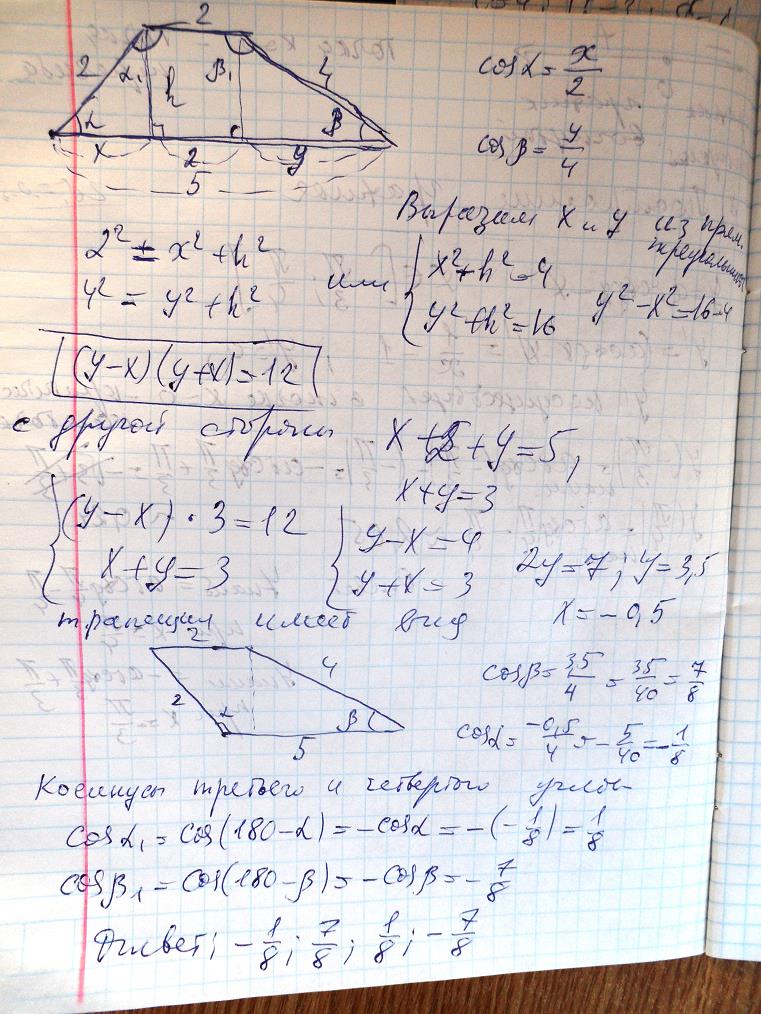 2
2 α₁ h β₁ 4
α β
x 2 y
5
cosα = x/2
cosβ = y/4
Выразим x и y из прям. треугольников
2² = x² + h²
4² = y² + h²
или
{ x² + h² = 4
y² + h² = 16
y² - x² = 16-4
(y-x)(y+x) = 12
с другой стороны x + 2 + y = 5,
x+y = 3
{ (y-x)·3 = 12
x+y = 3
{ y-x = 4
y+x = 3
2y = 7; y = 3,5
x = -0,5
трапеция имеет вид
2
2 4
α β
5
cosβ = 3,5/4 = 35/40 = 7/8
cosα = -0,5/4 = -5/40 = -1/8
Косинусы третьего и четвертого углов
cosα₁ = cos(180-α) = -cosα = -(-1/8) = 1/8
cosβ₁ = cos(180-β) = -cosβ = -7/8
Ответ; -1/8; 7/8; 1/8; -7/8